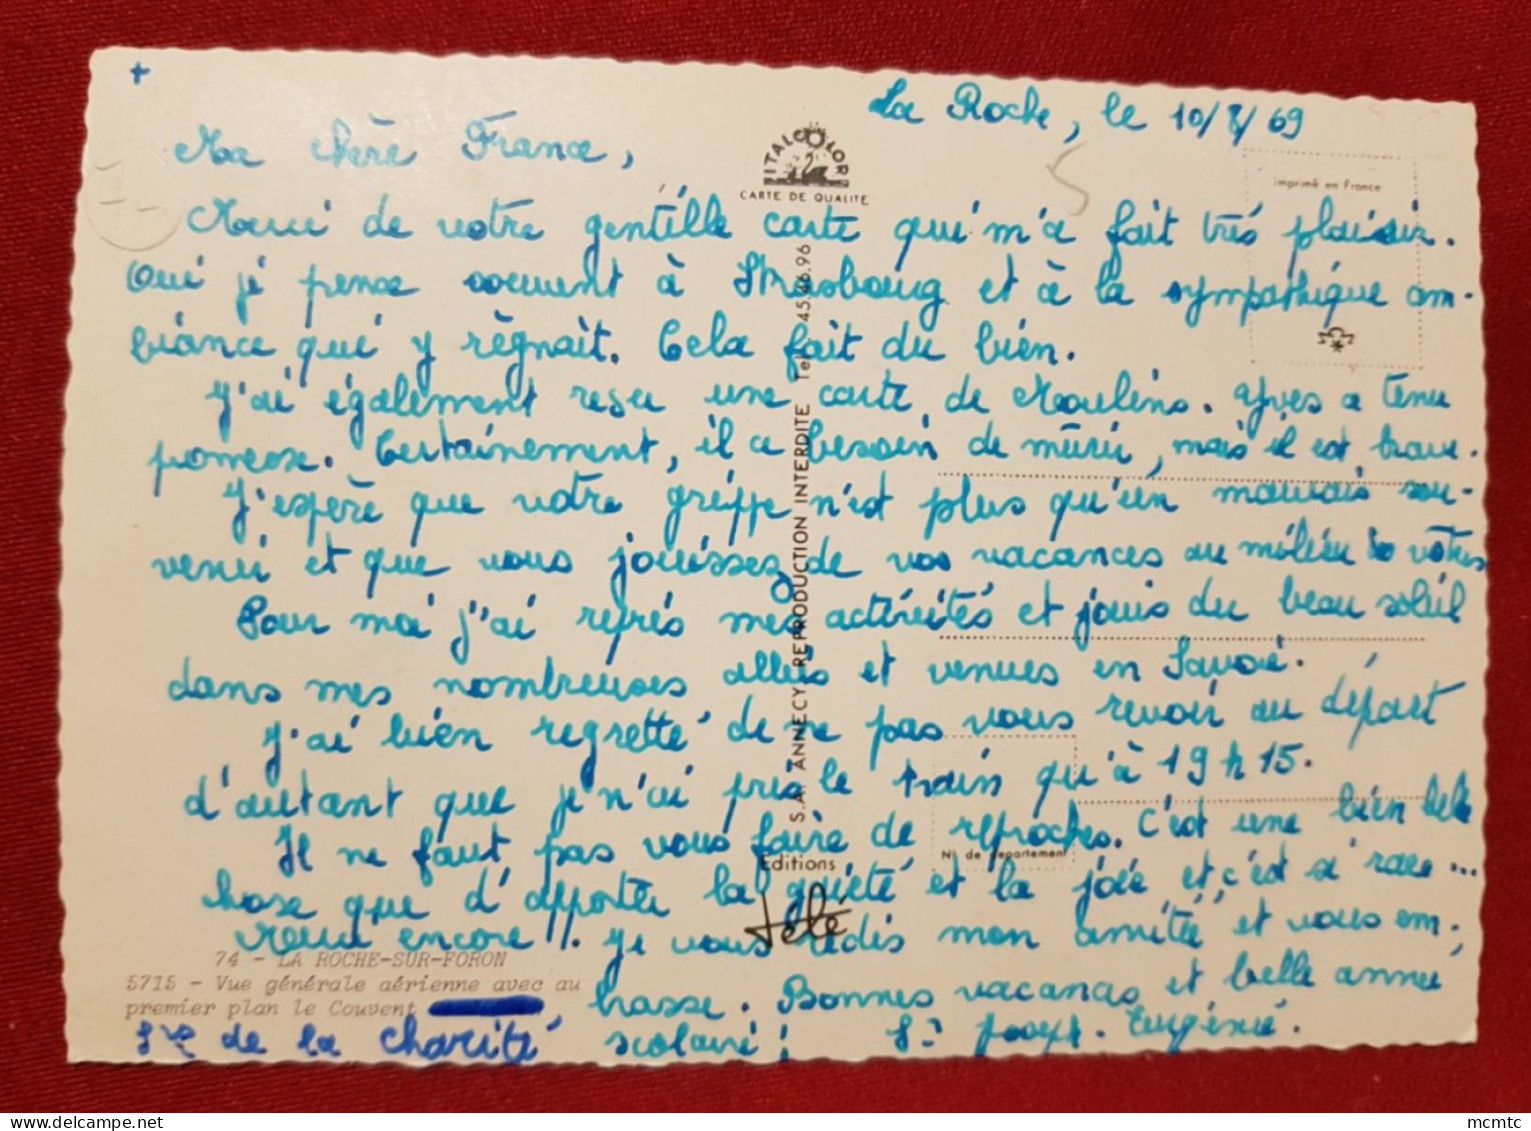 +
La Roche, le 10/8/69
Ma chère France,
ITALCOLOR
CARTE DE QUALITE
imprimé en France
Merci de votre gentille carte qui m'a fait très plaisir.
Oui je pense souvent à Strasbourg et à la sympathique am-
biance qui y règnait. Cela fait du bien.
J'ai également reçu une carte de Moulins. Yves a tenu
promesse. Certainement, il a besoin de mûrir, mais il est brave.
J'espère que votre grippe n'est plus qu'un mauvais sou-
venir et que vous jouissez de vos vacances au milieu des vôtres
Pour moi j'ai repris mes activités et jouis du beau soleil
dans mes nombreuses allées et venues en Savoie.
J'ai bien regretté de ne pas vous revoir au départ
d'autant que je n'ai pris le train qu'à 19 h 15.
Il ne faut pas vous faire de reproches. C'est une bien belle
chose que d'apporter la gaieté et la joie et c'est si rare...
Merci encore !. Je vous redis mon amitié et vous em-
brasse. Bonnes vacances et belle année
scolaire ! Sr Joseph-Eugénie.
S.A. ANNECY REPRODUCTION INTERDITE Tel. 45.46.96
Editions
télé
N° de département
74 - LA ROCHE-SUR-FORON
5715 - Vue générale aérienne avec au
premier plan le Couvent
de la Charité
mcmtc